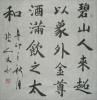 碧山人来超
以象外金尊
酒满饮之太
和